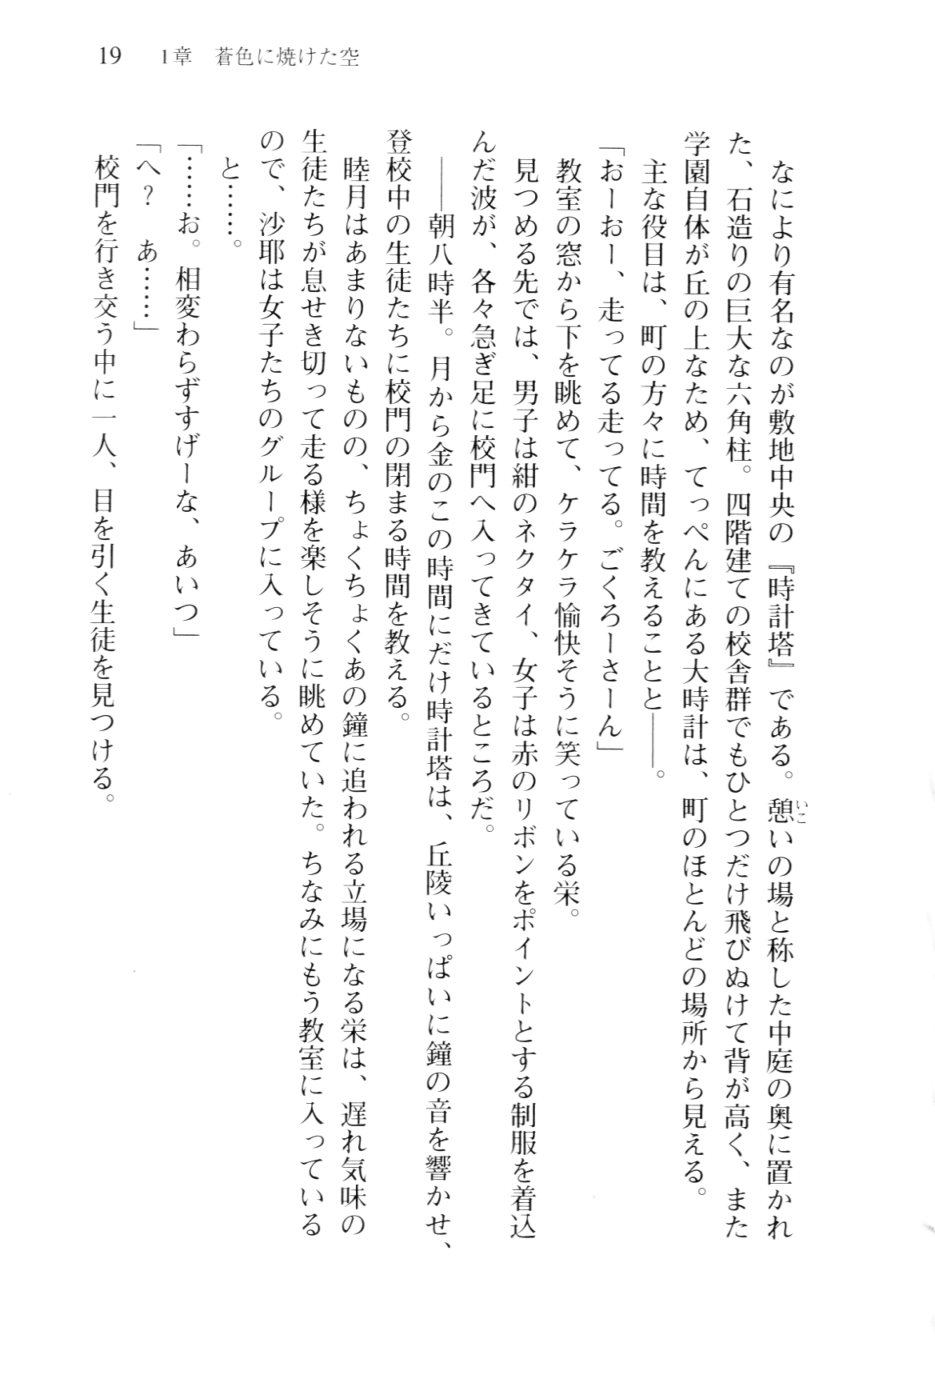 19　1章　蒼色に焼けた空
　なにより有名なのが敷地中央の『時計塔』である。憩いの場と称した中庭の奥に置かれ
いこ
た、石造りの巨大な六角柱。四階建ての校舎群でもひとつだけ飛びぬけて背が高く、また
学園自体が丘の上なため、てっぺんにある大時計は、町のほとんどの場所から見える。
　主な役目は、町の方々に時間を教えることと――。
「おーおー、走ってる走ってる。ごくろーさーん」
　教室の窓から下を眺めて、ケラケラ愉快そうに笑っている栄。
　見つめる先では、男子は紺のネクタイ、女子は赤のリボンをポイントとする制服を着込
んだ波が、各々急ぎ足に校門へ入ってきているところだ。
　――朝八時半。月から金のこの時間にだけ時計塔は、丘陵いっぱいに鐘の音を響かせ、
登校中の生徒たちに校門の閉まる時間を教える。
　睦月はあまりないものの、ちょくちょくあの鐘に追われる立場になる栄は、遅れ気味の
生徒たちが息せき切って走る様を楽しそうに眺めていた。ちなみにもう教室に入っている
ので、沙耶は女子たちのグループに入っている。
　と……。
「……お。相変わらずすげーな、あいつ」
「へ？　あ……」
　校門を行き交う中に一人、目を引く生徒を見つける。